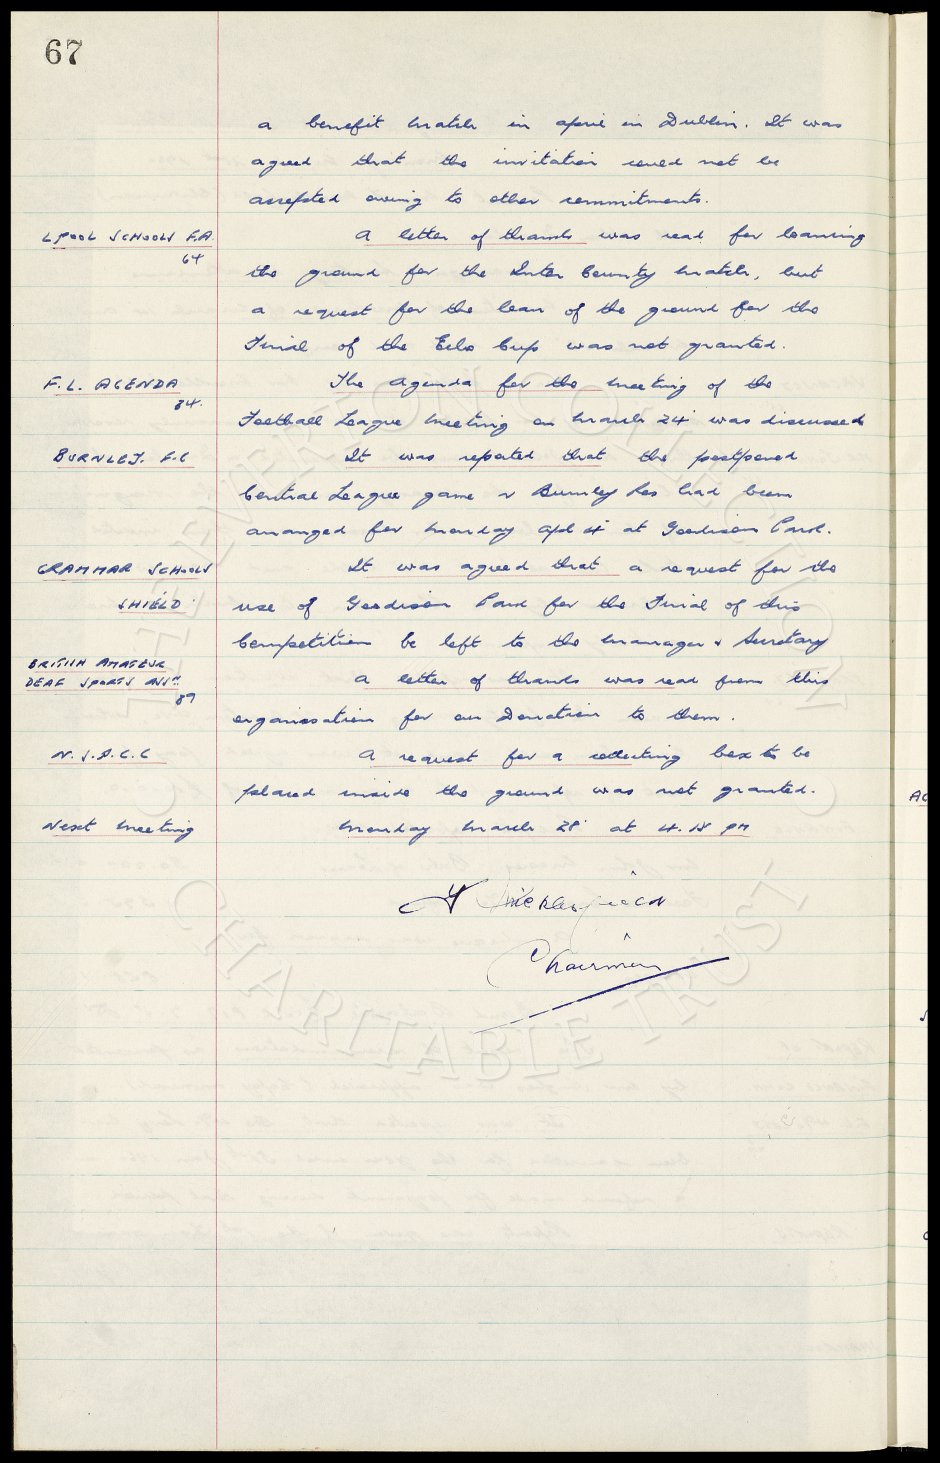 67
a benefit match in april in Dublin. It was
agreed that the invitation could not be
accepted owing to other commitments.
LPOOL SCHOOLS F.A.
64
A letter of thanks was read for loaning
the ground for the Inter County match, but
a request for the loan of the ground for the
Final of the Echo Cup was not granted.
F. L. AGENDA
84.
The Agenda for the meeting of the
Football League meeting on March 24 was discussed
BURNLEY. F.C
It was reported that the postponed
Central League game v Burnley Res had been
arranged for Monday Apl 4 at Goodison Park.
GRAMMAR SCHOOLS
SHIELD
It was agreed that a request for the
use of Goodison Park for the Final of this
Competition be left to the manager & Secretary
BRITISH AMATEUR
DEAF SPORTS ASSN
89
A letter of thanks was read from this
organisation for our Donation to them.
N.S.P.C.C
A request for a collecting box to be
placed inside the ground was not granted.
Next Meeting
Monday March 28 at 4.15 PM
Chairman
THE EVERTON COLLECTION
CHARITABLE TRUST